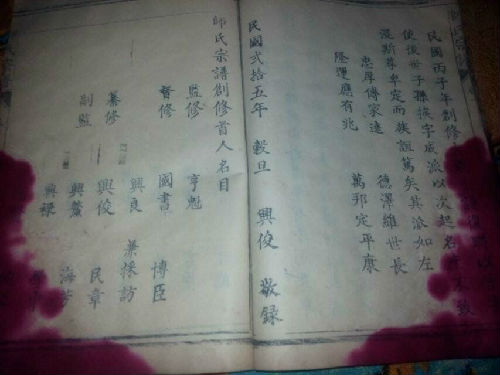 民國丙子年創修
使後世子孫挨字成派以次起名
尊卑定而族誼篤矣其派如左
忠厚傳家遠 德澤維世長
隆運應有兆 萬邪定平康
民國貳拾五年 穀旦 興俊 敬録
師氏宗譜創修首人名目
監修 亨魁
督修 國書 博臣
興良 兼採訪
纂修 興俊 民章
副監 興鰲 海
興祿